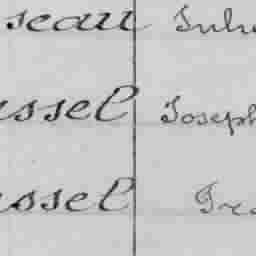 seau Juli
ussel Joseph
ussel Fra